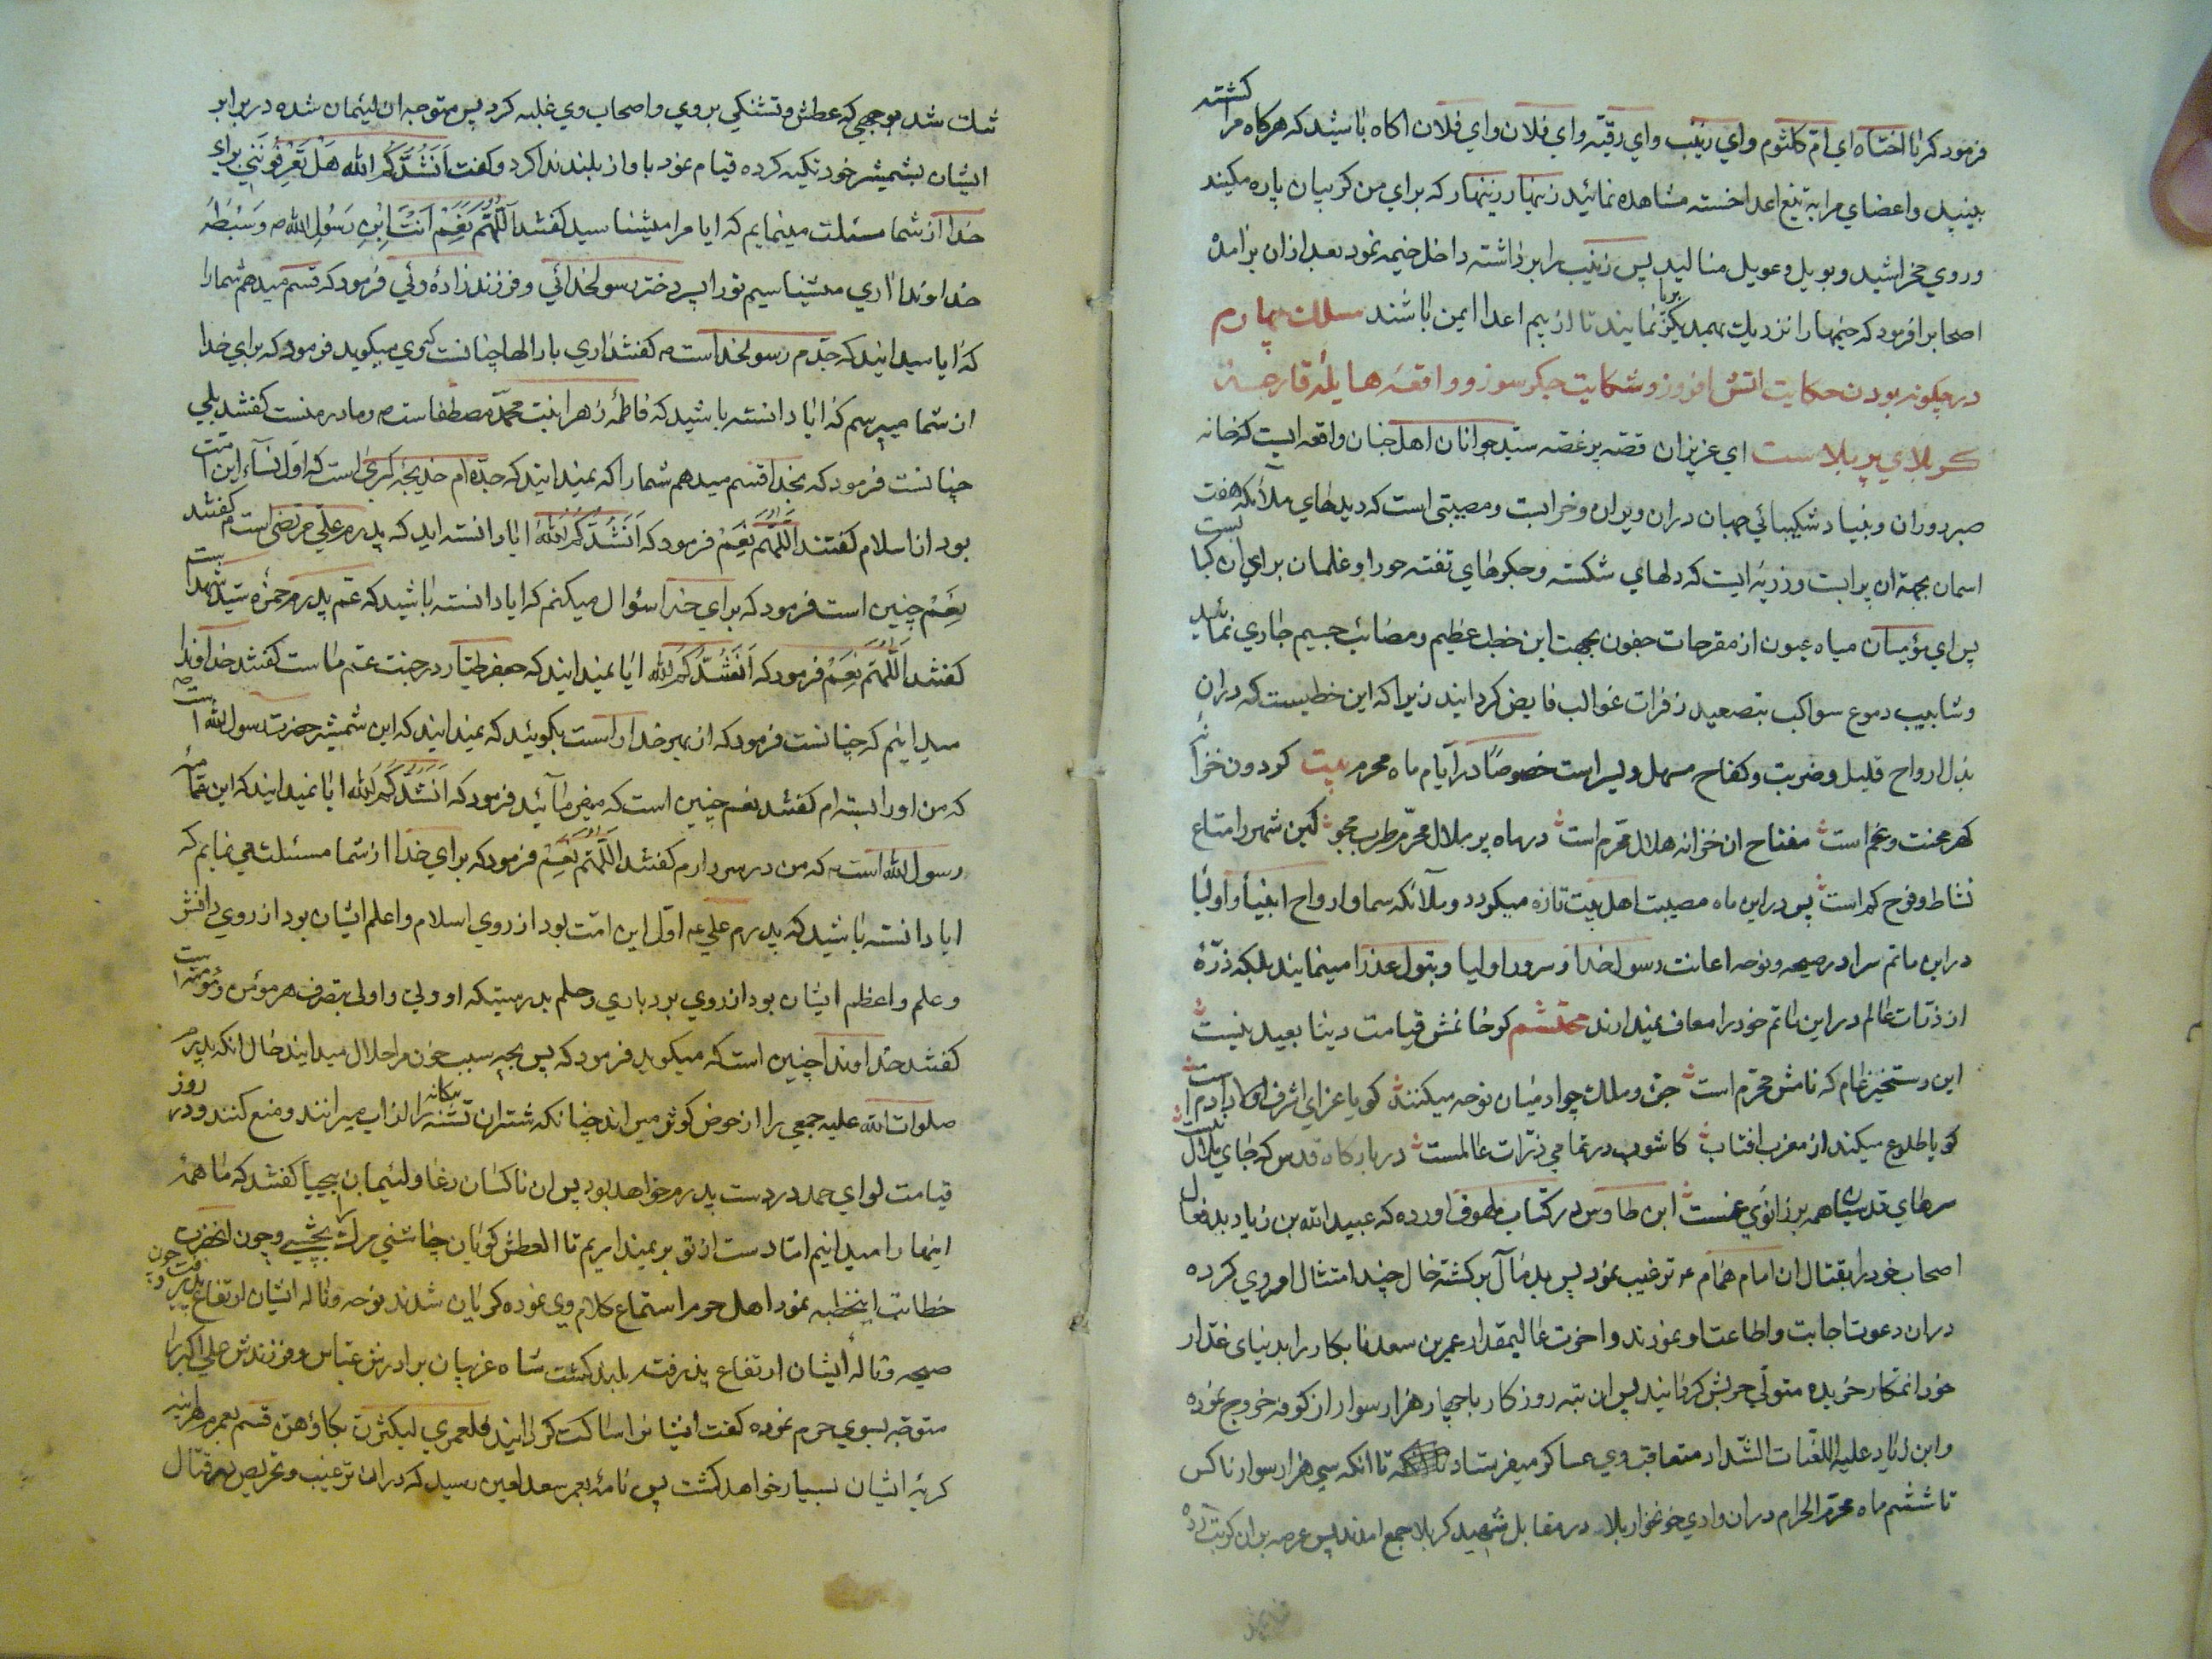 کشته
فرمود که یا اختاه ای ام کلثوم و ای زینب و ای رقیه و ای فلان و ای فلان اکاه باشید که هرکاه مرا
بینید و اعضای مرا به تیغ اعدا خسته مشاهده نمائید زنهار زینهار که برای من کریبان پاره مکیند
و روی مخراشید و بویل و عویل منالید پس زینب را برداشته داخل خیمه نمود بعد از ان برامده
اصحابرا فرمود که خیمها را نزدیک بهمدیکر نمایند تا از بیم اعدا ایمن باشند مسلک چهارم
در چکونه بودن حکایت اتش افروز و شکایت جکرسوز و واقعه هایله قارحهٔ
کربلای پر بلاست ای عزیزان قصه پر غصه سید جوانان اهل جنان واقعه ایست که خانه
صبر دوران و بنیاد شکیبائی جهان دران ویران و خرابست و مصیبتی است که دیدهای ملائکه هفت
اسمان بجهة ان پر ابست و رزیه ایست که دلهای شکسته و جکرهای تفته حورا و غلمان برای ان کبا بست
پس ای مؤمنان میاه عیون از مقرحات جفون بجهت این خطب عظیم و مصائب جسیم جاری نمائید
و شابیب دموع سواکب بتصعید زفرات غوالب فایض کردانید زیرا که این خطبیست که دران
بذل ارواح قلیل و ضربت و کفاح سهل و یسر است خصوصًا در ایام ماه محرم بیت کردون خزانه
کهر محنت و غم است مفتاح ان خزانه هلال محرم است در ماه پر ملال محرم طرب مجو کین شهر را متاع
نشاط و فرح کم است پس در این ماه مصیبت اهل بیت تازه میکردد و ملائکه سما و ارواح انبیا و اولیا
در این ماتم سرا در صیحه و نوحه اعانت رسول خدا و سرور اولیا و بتول عذرا مینمایند بلکه ذرهٔ
از ذرات عالم در این ماتم خود را معاف نمیدارند محتشم کر خانمش قیامت دینا بعید نیست
این رستخیز عام که نامش محرم است جن و ملک چو ادمیان نوحه میکنند کویا عزای اشرف اولاد ادم است
کویا طلوع میکند از مغرب افتاب کاشوب در تمامی ذرات عالمست در بارکاه قدس که جای ملال نیست
سرهای قدسیان همه بر زانوی غمست ابن طاوس در کتاب ملهوف اورده که عبید الله بن زیاد بد فعال
اصحاب خود را بقتال ان امام همام ع ترغیب نمود پس بد مآل برکشته خال چند امتثال امر وی کرده
دران دعوت اجابت و اطاعت او نمودند و اخرت عالیمقدار عمر بن سعد نابکار را بدنیای غدار
خود انتکار خریده متولی حربش کردانید پس ان تبه روزکار با چهار هزار سوار از کوفه خروج نموده
و ابن زیاد علیه اللغبات الشداد متعاقب وی عساکر میفرستاد تا انکه سی هزار سوار ناکس
تا ششم ماه محرم الحرام دران وادی خونخوار بلا در مقابل شهید کربلا جمع امدند پس عرصه بران کربت زده
تنک شد بوجهی که عطش و تشنکی بر وی و اصحاب وی غلبه کرد پس متوجه ان لئیمان شده در برابر
ایشان بشمیشر خود تکیه کرده قیام نمود باواز بلند ندا کرد و کفت اَنشُدُکُمُ الله هَل تَعرِفُونَنی برای
خدا از شما مسئلت مینمایم که ایا مرا میشناسید کفتند اللّهُمَّ نَعَم اَنتَ اِبنُ رَسُولِ الله ص وَ سِبطُهُ
خداوندا اری میشناسیم تو را پسر دختر رسول خدائی و فرزند زادهٔ وئی فرمود که قسم میدهم شما را
که ایا میدانید که جدم رسول خداست ص کفتند اری بار الها چنانست که وی میکوید فرمود که برای خدا
از شما میپرسم که ایا دانسته باشید که فاطمه زهرا بنت محمد مصطفاست ص و مادر منست کفتند بلی
چنانست فرمود که بخدا قسم میدهم شما را که نمیدانید که جده ام خدیجه کبری است که اول نساء این امت
بود از اسلام کفتند اللّهُمَّ نَعَم فرمود که اَنشُدُکُمُ اللهَ ایا دانسته اید که پدرم علی مرتضی است ع کفتند
نَعَم چنین است فرمود که برای خدا سؤال میکنم که ایا دانسته باشید که عم پدرم حمزه سید شهدا ست
کفتند اللّهُمَّ نَعَم فرمود که اَنشُدُکُمُ الله ایا نمیدانید که جعفر طیار در جنت عم ماست کفتند خداوندا
میدانیم که چنانست فرمود که از بهر خدا راست بکوئید که نمیدانید که این شمیشر حضرت رسول الله است ص
که من او را بسته ام کفتند نعم چنین است که میفرمائید فرمود که اَنشُدُکُمُ الله ایا نمیدانید که این عمامه
رسول الله است ص که من در سر دارم کفتند اللّهُمَّ نَعَم فرمود که برای خدا از شما مسئلت می نمایم که
ایا دانسته باشید که پدرم علی ع اول این امت بود از روی اسلام و اعلم ایشان بود از روی دانش
و علم و اعظم ایشان بود از روی بردباری و حلم بدرستیکه او ولی و اولی بتصرف هر مؤمن و مؤمنه است
کفتند خداوندا چنین است که میکوید فرمود که پس بچه سبب خون مرا حلال میدانید حال انکه پدرم
صلوات الله علیه جمعی را از حوض کوثر میراند چنانکه شتران تشنه بیکانه را از اب میرانند و منع کنند و در روز
قیامت لوای حمد در دست پدرم خواهد بود پس ان ناکسان دغا و لئیمان بیحیا کفتند که ما همهٔ
اینها را میدانیم اما دست از تو بر نمیداریم تا العطش کویان چاشنی مرک را بچشی و چون انحضرت
خطابت اینخطبه نمود اهل حرم را استماع کلام وی نموده کریان شدند نوحه و ناله ایشان ارتفاع پذیرفت چون
صیحه و نالهٔ ایشان ارتفاع پذیرفت بلند کشت شاه غریبان برادرش عباس و فرزندش علی اکبر را
متوجه بسوی حرم نموده کفت ایشان را ساکت کردانید فلعمری لیکثرن بکاؤهن قسم بعمرم هراینه
کریهٔ ایشان بسیار خواهد کشت پس نامهٔ بعمر سعد لعین رسید که دران ترغیب و تحریص بر قتال